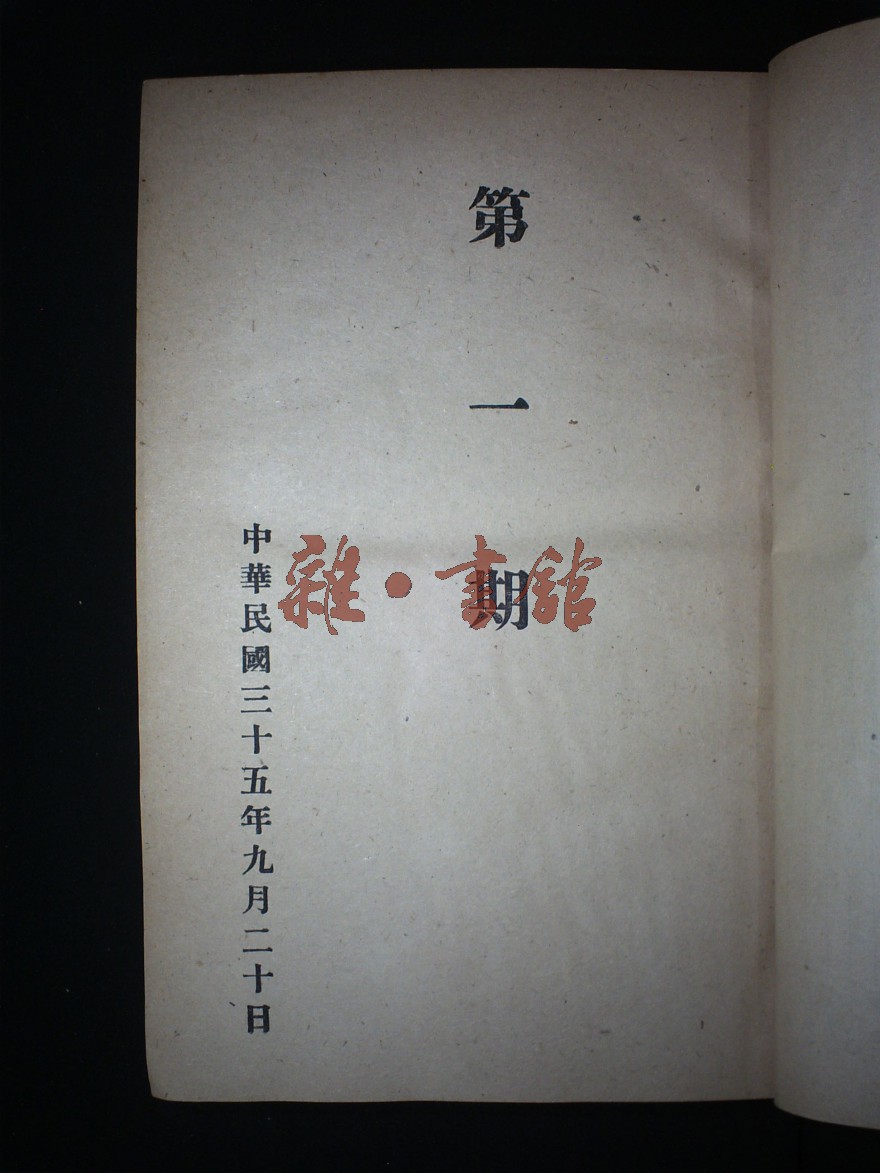 第一期
中華民國三十五年九月二十日
雜·書館